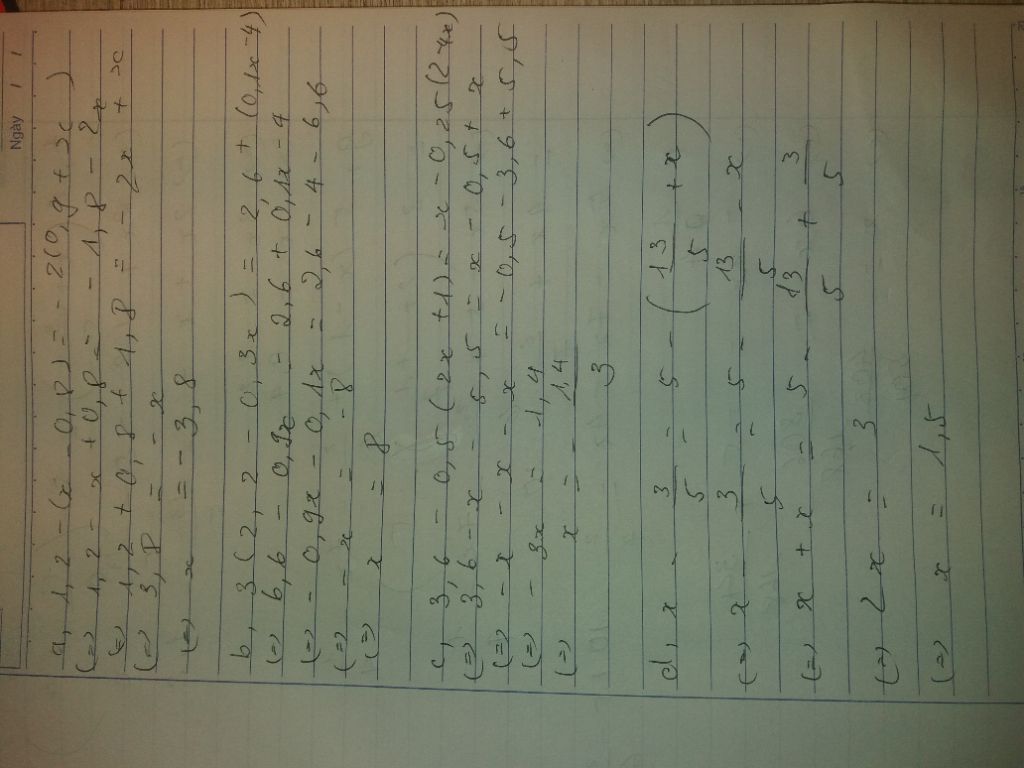 Ngày
a, 1,2 - (x - 0,8) = - 2(0,9 + x)
(=) 1,2 - x + 0,8 = - 1,8 - 2x
(=) 1,2 + 0,8 + 1,8 = - 2x + x
(=) 3,8 = - x
(=) x = - 3,8
b, 3(2,2 - 0,3x) = 2,6 + (0,1x - 4)
(=) 6,6 - 0,9x = 2,6 + 0,1x - 4
(=) - 0,9x - 0,1x = 2,6 - 4 - 6,6
(=) - x = - 8
(=) x = 8
c, 3,6 - 0,5(2x + 1) = x - 0,25(2 - 4x)
(=) 3,6 - x - 5,5 = x - 0,5 + x
(=) - x - x - x = - 0,5 - 3,6 + 5,5
(=) - 3x = 1,4
(=) x = - 1,4/3
d, x - 3/5 = 5 - (13/5 + x)
(=) x - 3/5 = 5 - 13/5 - x
(=) x + x = 5 - 13/5 + 3/5
(=) 2x = 3
(=) x = 1,5